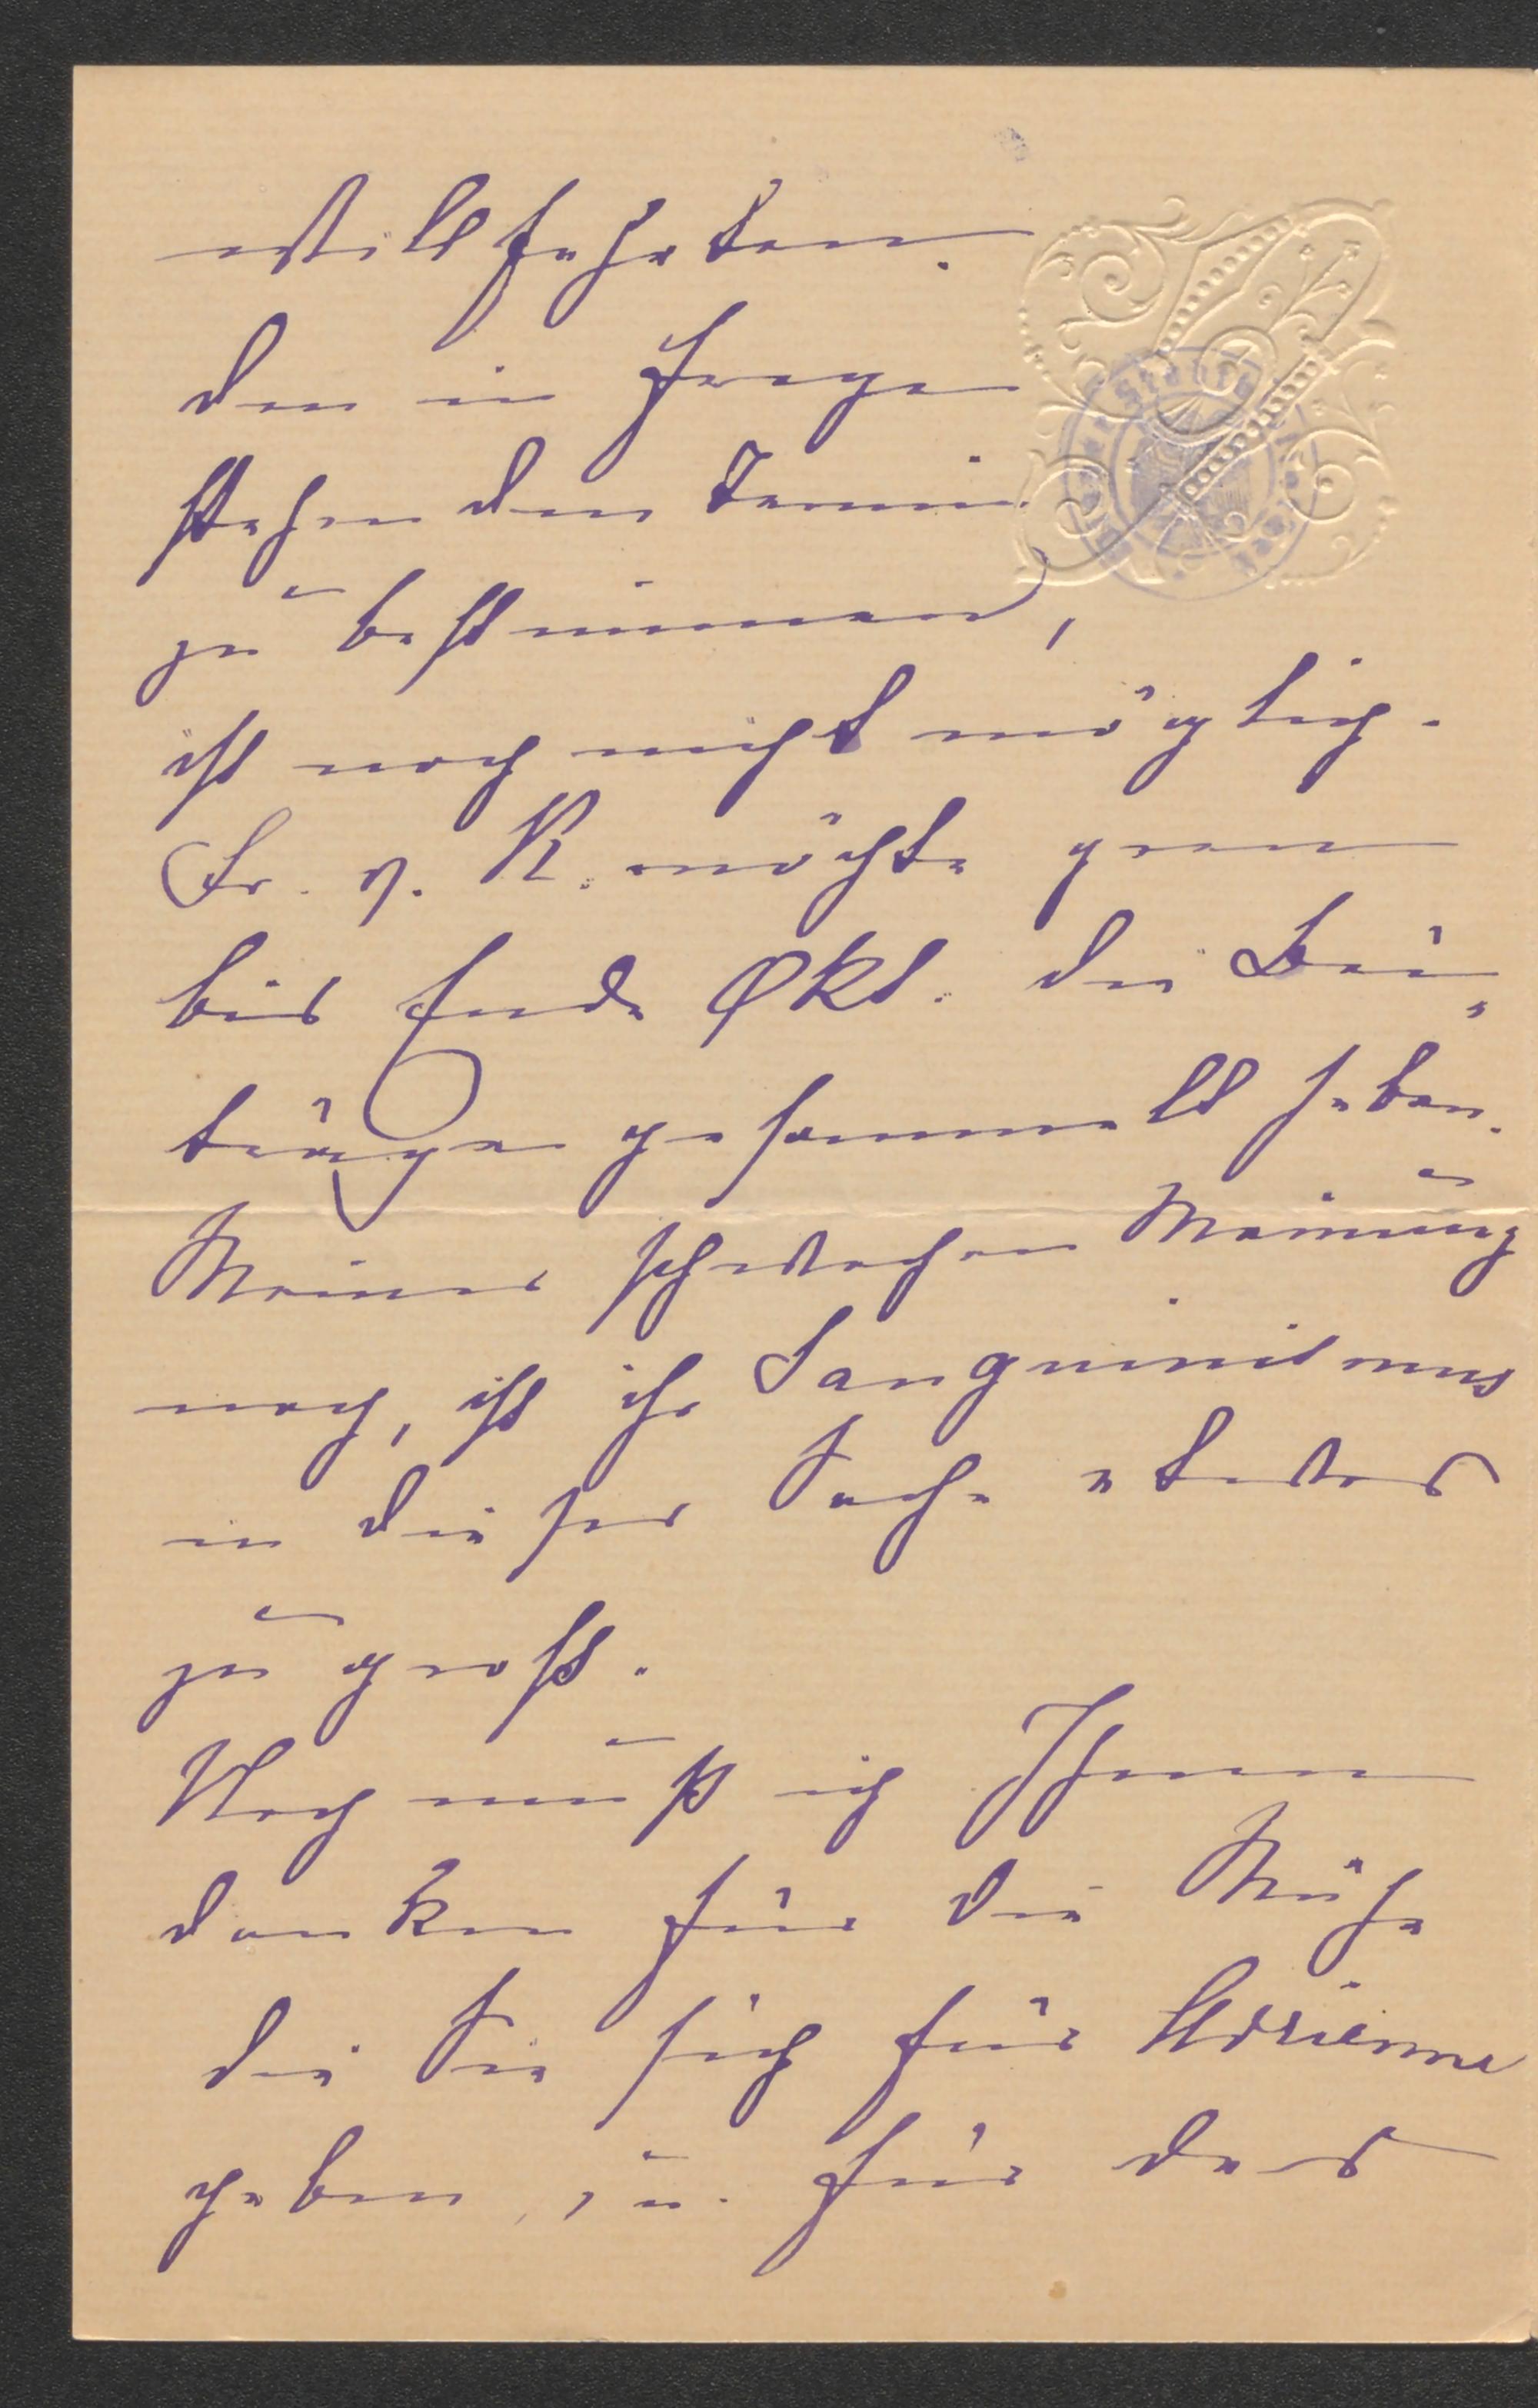 willfahrten.
den in Frage
stehenden Termin
zu bestimmen,
ist noch nicht möglich.
Fr. v. K. möchte gern
bis Ende Okt. die Bei„
träge gesammelt haben.
Meiner schwachen Meinung
nach, ist ihr Sanguinismus
in dieser Sache etwas
zu groß.
Noch muß ich Ihnen
danken für die Mühe
die Sie sich für Adrienne
geben, u. für das